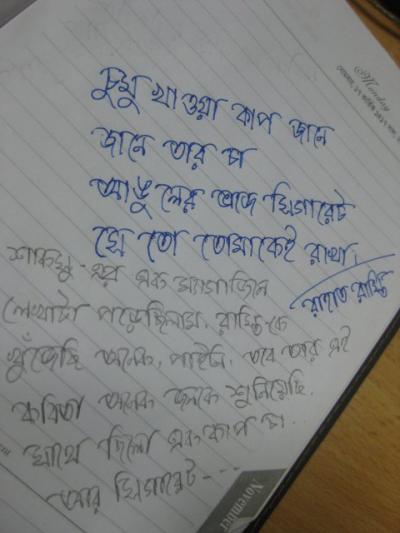 চুমু খাওয়া কাপ জানে
জানে তার চা
আঙুলের ভাজে সিগারেট
সে তো তোমাকেই রাখা।
এর এক ম্যাগাজিনে
লেখাটা পড়েছিলাম. কে
খুঁজেছি অনেক, পাইনি. তবে তার এই
কবিতা অনেক জনকে শুনিয়েছি.
সাথে ছিলো এক কাপ চা...
আর সিগারেট---
Monday
November